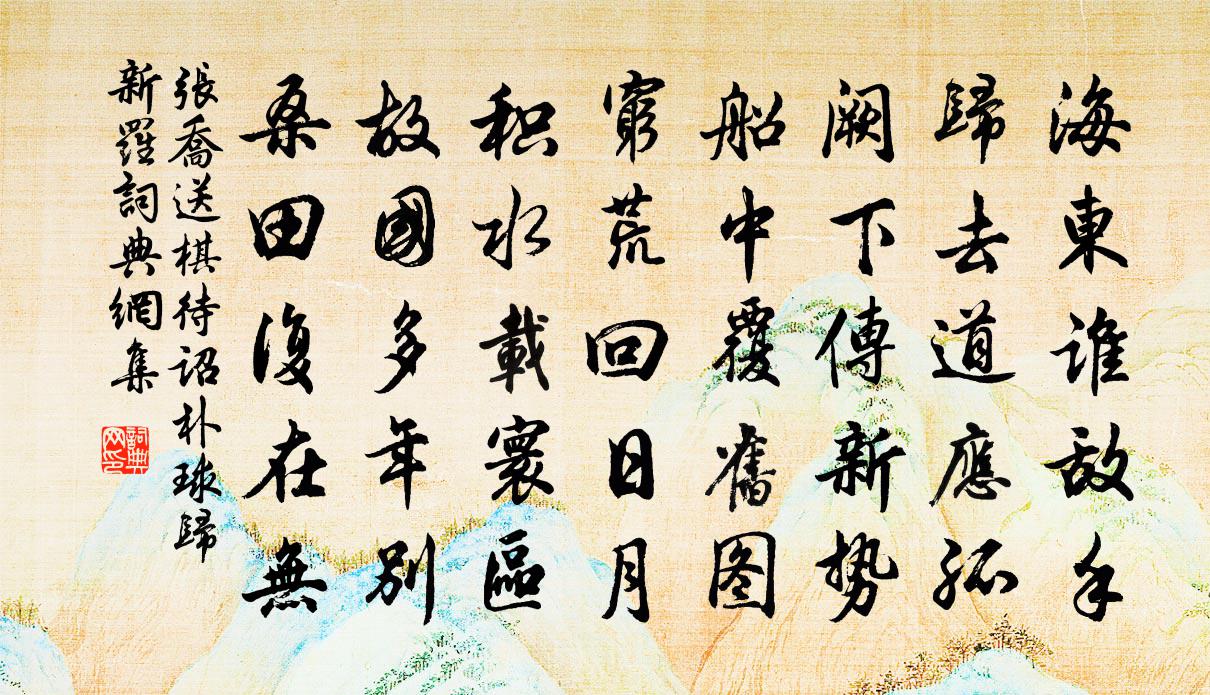 海東誰敵手
歸去道應孤
闕下傳新勢
船中覆舊图
窮荒回日月
积水載寰區
故國多年別
桑田復在無
張喬送棋待詔朴球歸
新羅詞典網集
詞典网印